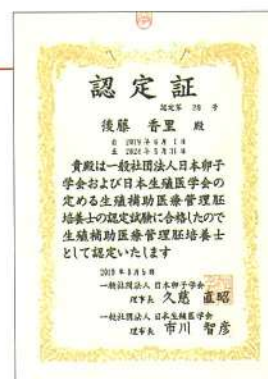 認定証
認定第 20 号
後藤 香里 殿
自 2019年 6月 1日
至 2024年 5月31日
貴殿は一般社団法人日本卵子
学会および日本生殖医学会の
定める生殖補助医療管理胚
培養士の認定試験に合格したので
生殖補助医療管理胚培養士
として認定いたします
2019年 6月5日
一般社団法人 日本卵子学会
理事長 久慈 直昭
一般社団法人 日本生殖医学会
理事長 市川 智彦